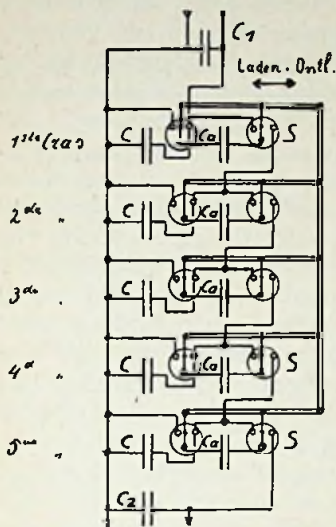 C1
Laden. Ontl.
1ste
C Ca S
2de "
C Ca
3de "
C Ca
4d "
C Ca S
5 "
C Ca S
C2